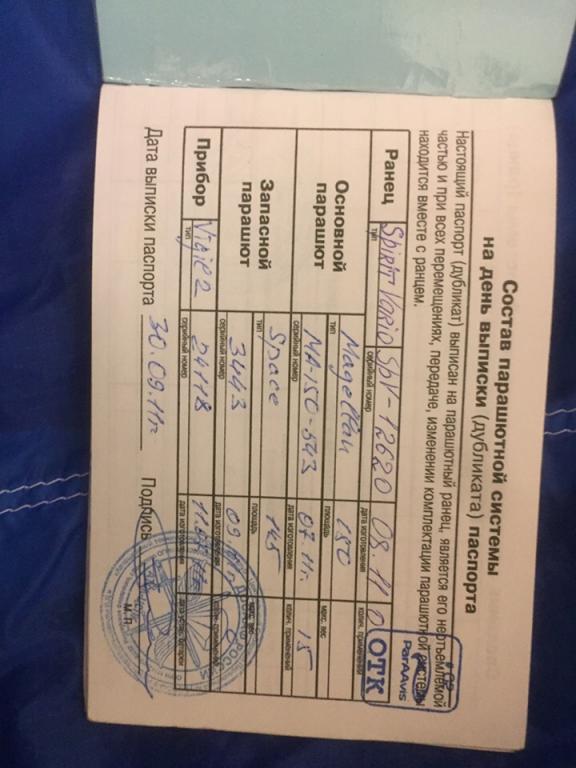 Состав парашютной системы
на день выписки (дубликата) паспорта
Настоящий паспорт (дубликат) выписан на парашютный ранец, является его неотъемлемой
частью и при всех перемещениях, передаче, изменении комплектации парашютной системы
находится вместе с ранцем.
Ранец
тип
Spirit Vario
серийный номер
SpV-12620
дата изготовления
09.11
колич. применений
0
Основной парашют
тип
Magellan
площадь
150
макс. вес
серийный номер
MA-150-543
дата изготовления
07.11г.
колич. применений
15
Запасной парашют
тип
Space
площадь
145
макс. вес
серийный номер
3443
дата изготовления
09.
колич. применений
0
Прибор
тип
Vigil 2
серийный номер
24118
дата изготовления
11.
Дата выписки паспорта 30.09.11г.
Подпись
М.П.
ParAAvis
ОТК